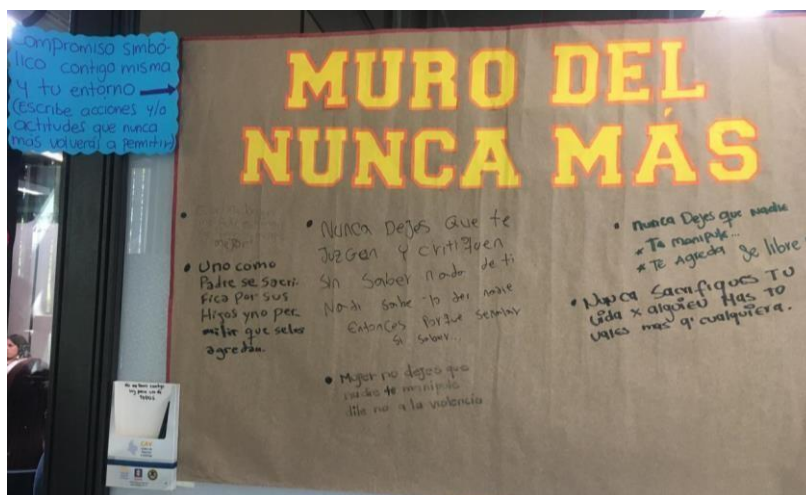 Compromiso simbó-
lico contigo misma
y tu entorno
(escribe acciones y/o
actitudes que nunca
más volverá a permitir)
MURO DEL
NUNCA MÁS
• Uno como
Padre se sacri-
fica por sus
Hijos y no per
mitir que selos
agredan.
• Nunca Dejes que te
Juzgen y critiquen
Sin Saber nada de ti
sabe lo de nadie
Entonces Porque señalar
Si saber...
• Mujer no dejes que
nadie te manipule
dile no a la violencia
• Nunca Dejes que Nadie
* Te manipule...
* Te Agreda Se libre
• Nunca Sacrifiques TU
vida x alguien Mas TU
vales mas q' cualquiera.